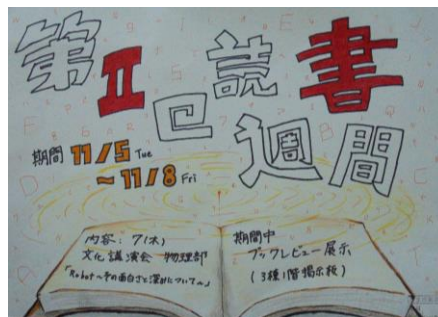 第Ⅱ回読書
週間
期間 11/5 Tue
～11/8 Fri
内容：7(木)
文化講演会 物理部
「Robot～その面白さと深みについて～」
期間中
ブックレビュー展示
(3種1階掲示板)